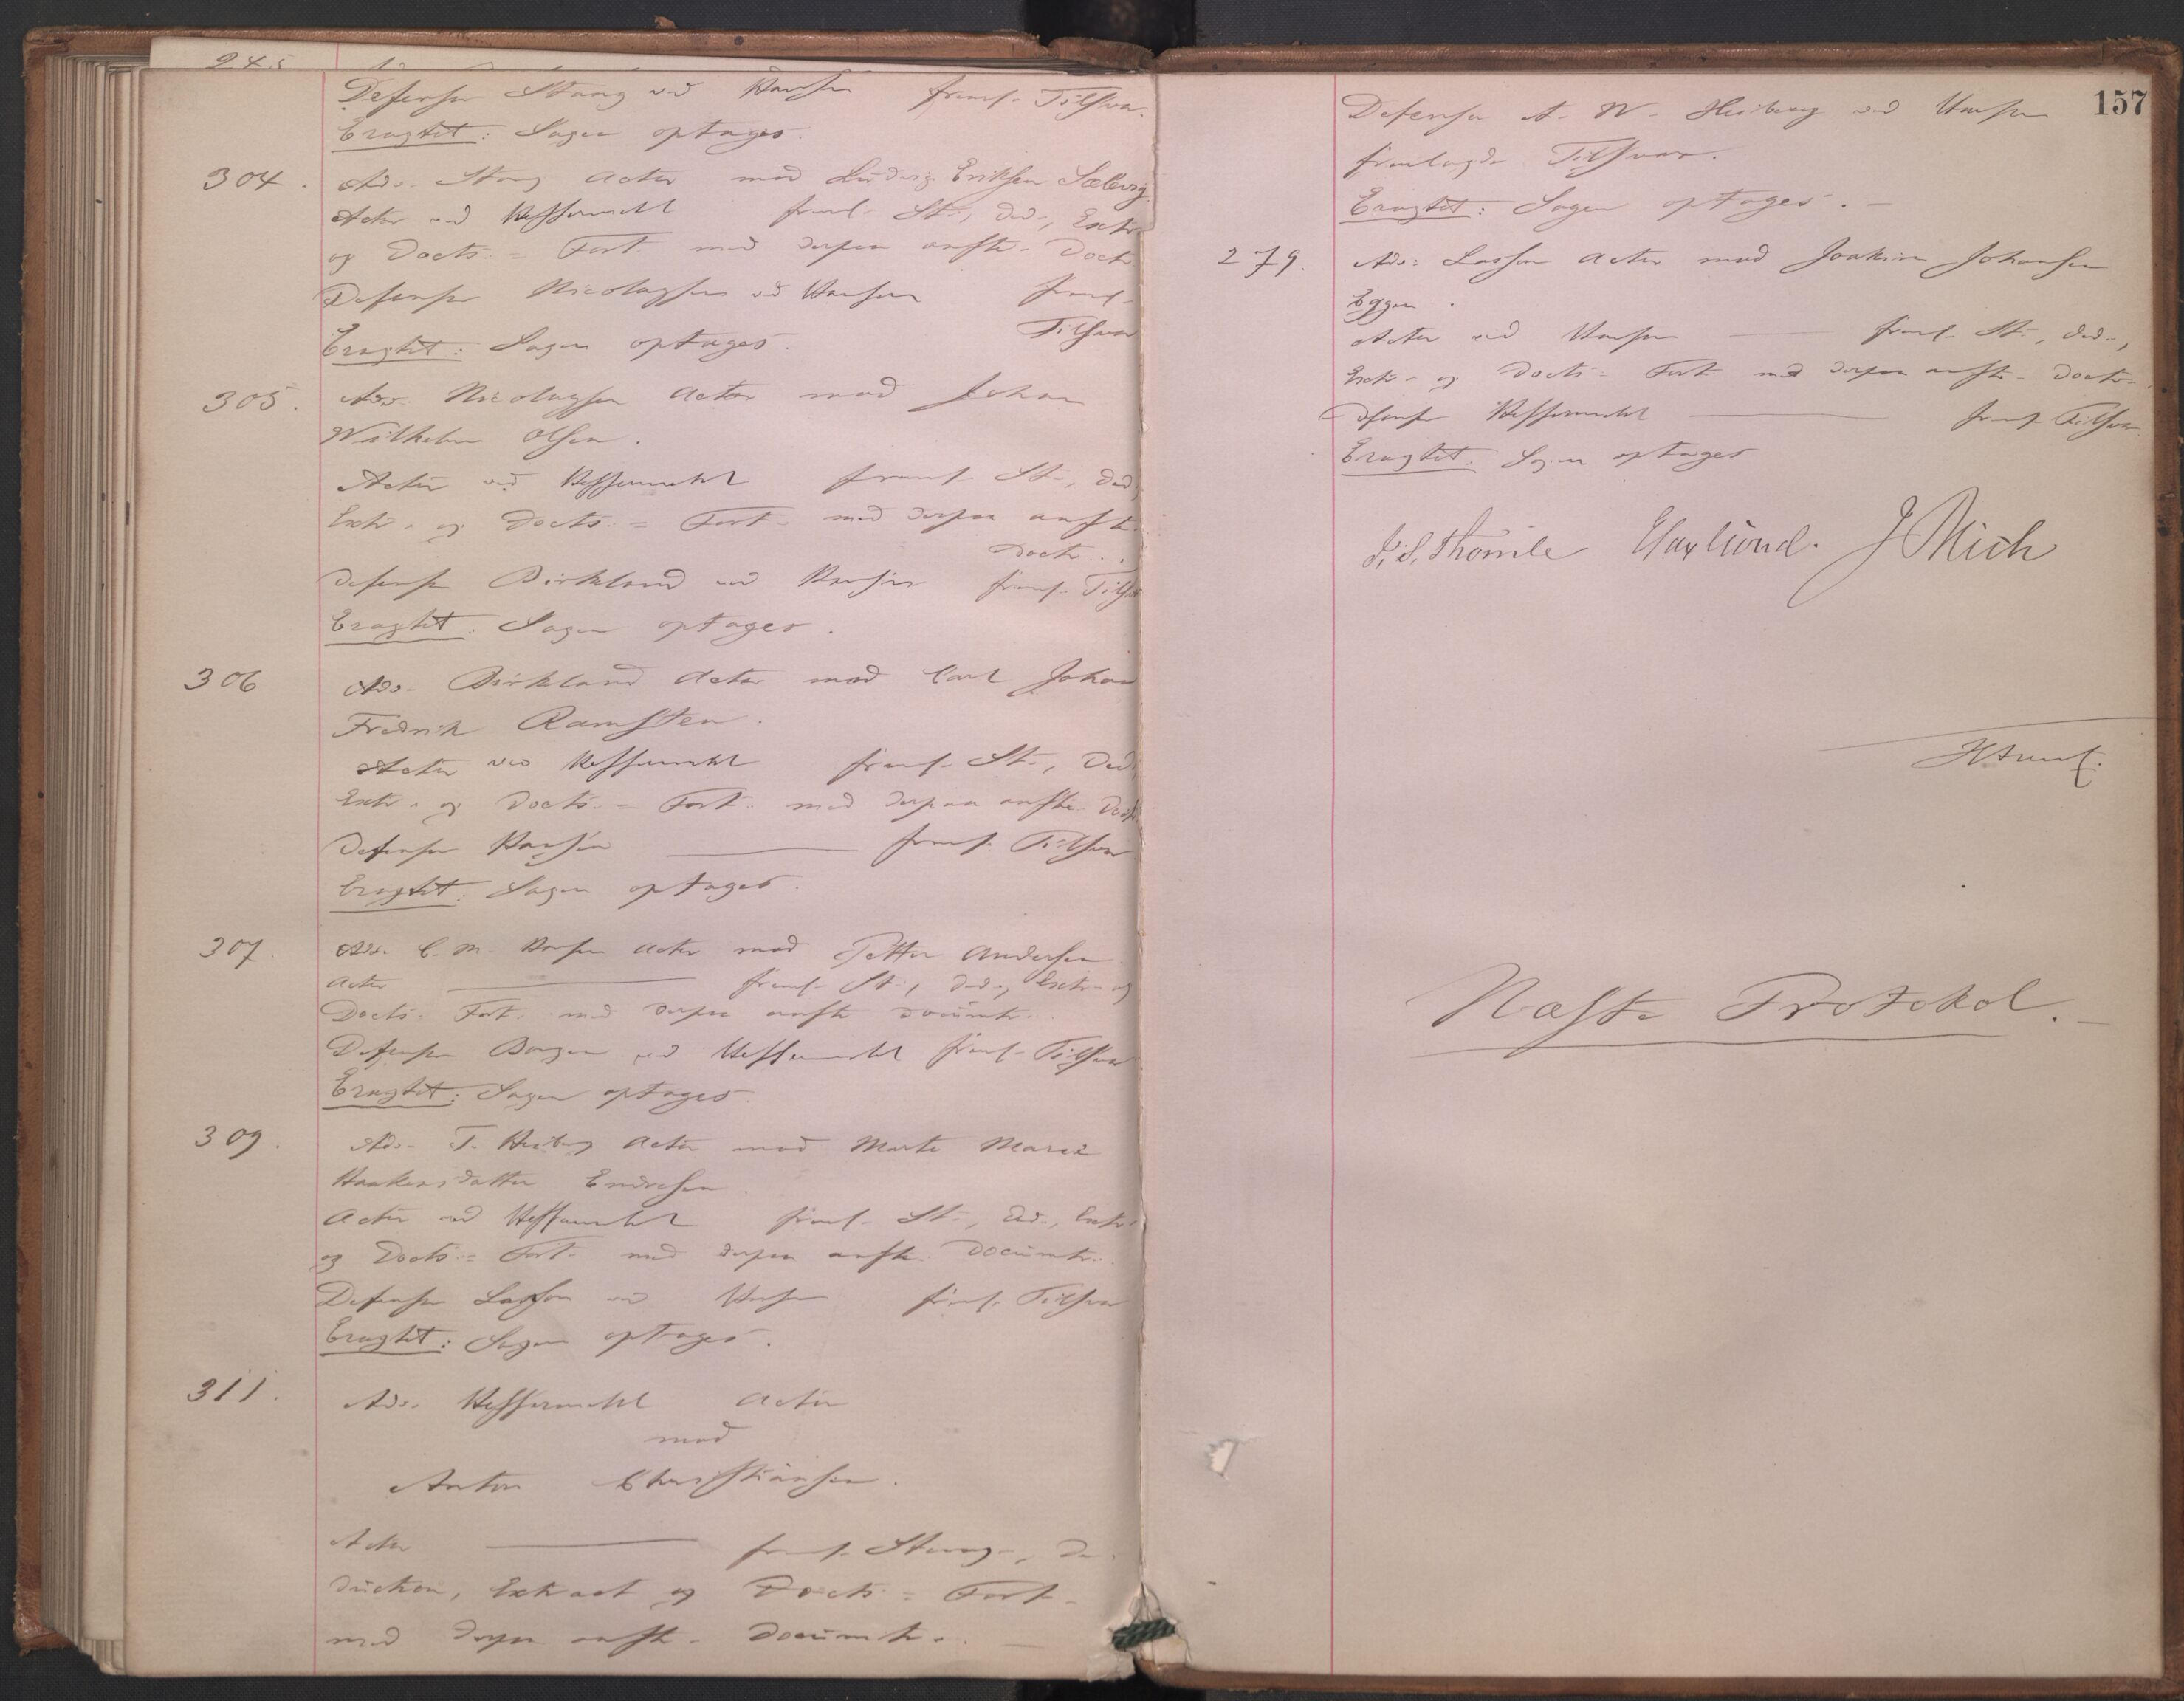 245
Defensor Stang ved Hansen freml. Tilsvar.
Eragtet: Sagen optages.
304. Adv. Stang Actor mod Ludvig Eriksen Sælevig
Actor ved Heffermehl freml. St., Ded., Extr.
og Docts. = Fort. med derpaa anfte. Doctr
Defensor Nicolaysen ved Hansen freml.
Tilsvar
Eragtet: Sagen optages.
305. Adv. Nicolaysen Actor mod Johan
Wilhelm Olsen.
Actor ved Heffermehl freml. St., Ded.,
Extr. og Docts. = Fort. med derpaa anfte.
Doctr.
Defensor Birkland ved Hansen freml. Tilsv
Eragtet: Sagen optages.
306 Adv. Birkland Actor mod Carl Johan
Fredrik Ramsten.
Actor ved Heffermehl freml. St., Ded.
Extr. og Docts. = Fort. med derpaa anfte. Doctr.
Defensor Hansen freml. Tilsvar
Eragtet: Sagen optages.
307. Adv. C. M. Hansen Actor mod Petter Andersen
Actor freml. St., Ded., Extr. og
Docts. Fort. med derpaa anfte Documtr.
Defensor Borgen ved Heffermehl freml. Tilsvar
Eragtet: Sagen optages.
309. Adv. T. Heiberg Actor mod Marte Marie
Haakensdatter Endresen
Actor ved Heffermehl freml. St., Ded., Extr.
og Docts. = Fort. med derpaa anfte. Documtr.
Defensor Lasson ved Hansen freml. Tilsvar
Eragtet: Sagen optages.
311. Adv. Heffermehl Actor
mod
Anton Christiansen.
Actor freml. Stevng., De-
duction, Extract og Docts. = Fort.
med derpaa anfte. Documtr.
157
Defensor A. W. Heiberg ved Hansen
fremlagde Tilsvar.
Eragtet: Sagen optages.
279. Adv. Lasson Actor mod Joakim Johansen
Eggen.
Actor ved Hansen freml. St., Ded.,
Extr. og Docts. Fort. med derpaa anfte. Doctr.
Defensor Heffermehl freml. Tilsvar
Eragtet: Sagen optages
J. S. Thomle Haxlund. J Mich
Næste Protokol.